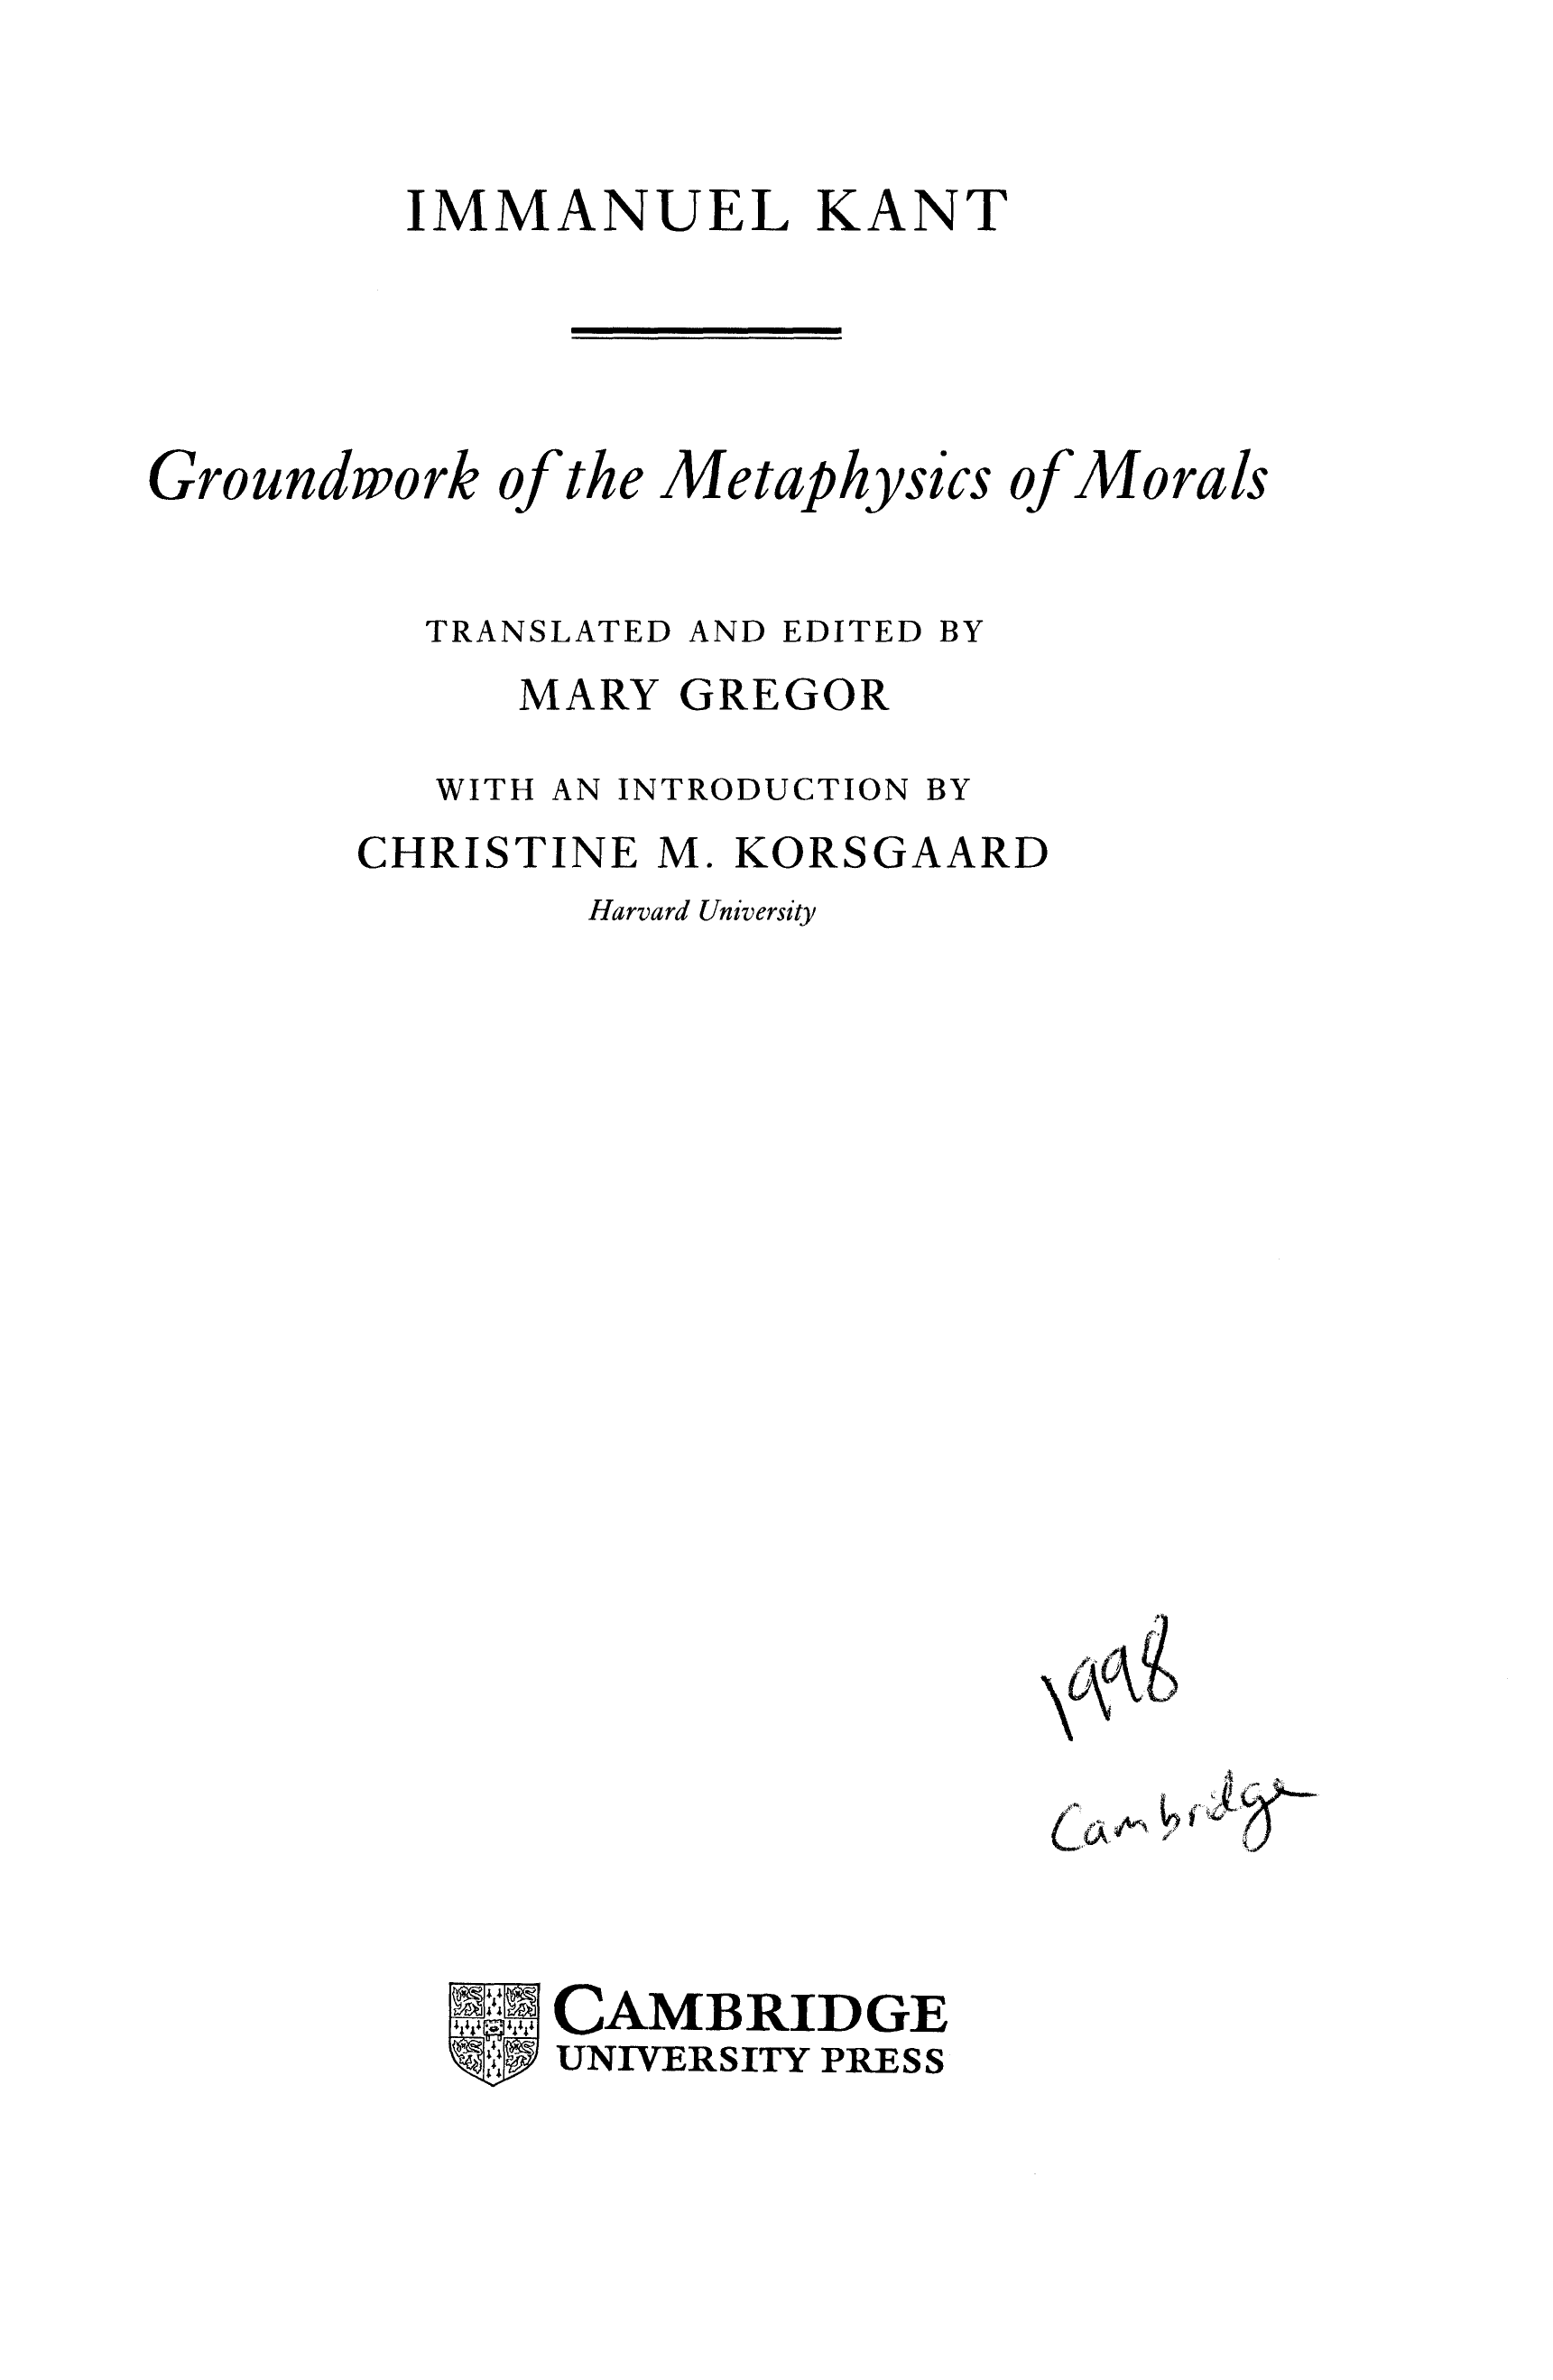 IMMANUEL KANT
Groundwork of the Metaphysics of Morals
TRANSLATED AND EDITED BY
MARY GREGOR
WITH AN INTRODUCTION BY
CHRISTINE M. KORSGAARD
Harvard University
1998
Cambridge
CAMBRIDGE
UNIVERSITY PRESS